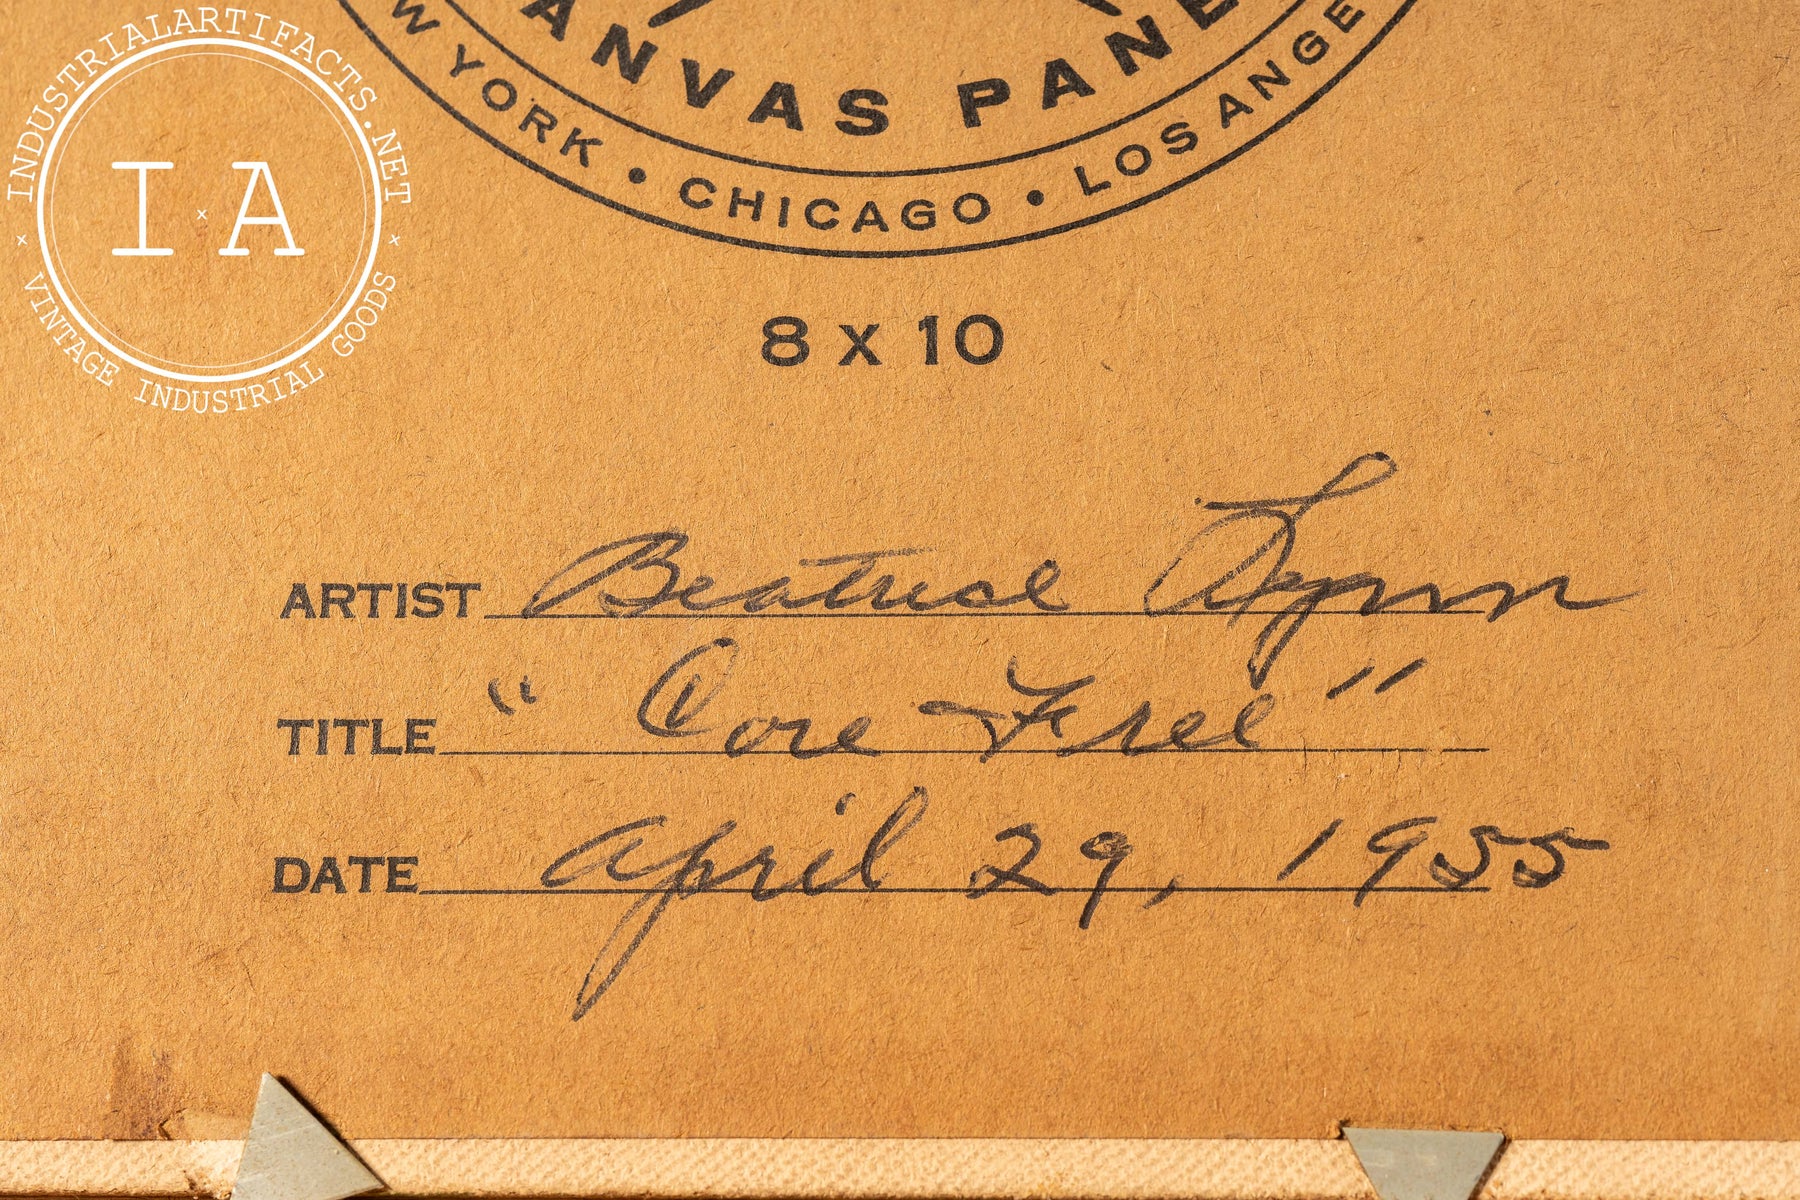 INDUSTRIALARTIFACTS.NET
I x A
x VINTAGE INDUSTRIAL GOODS x
ANVAS PANE
W YORK • CHICAGO • LOS ANGE
8 X 10
ARTIST Beatrice Lynn
TITLE " Core Free "
DATE April 29, 1955